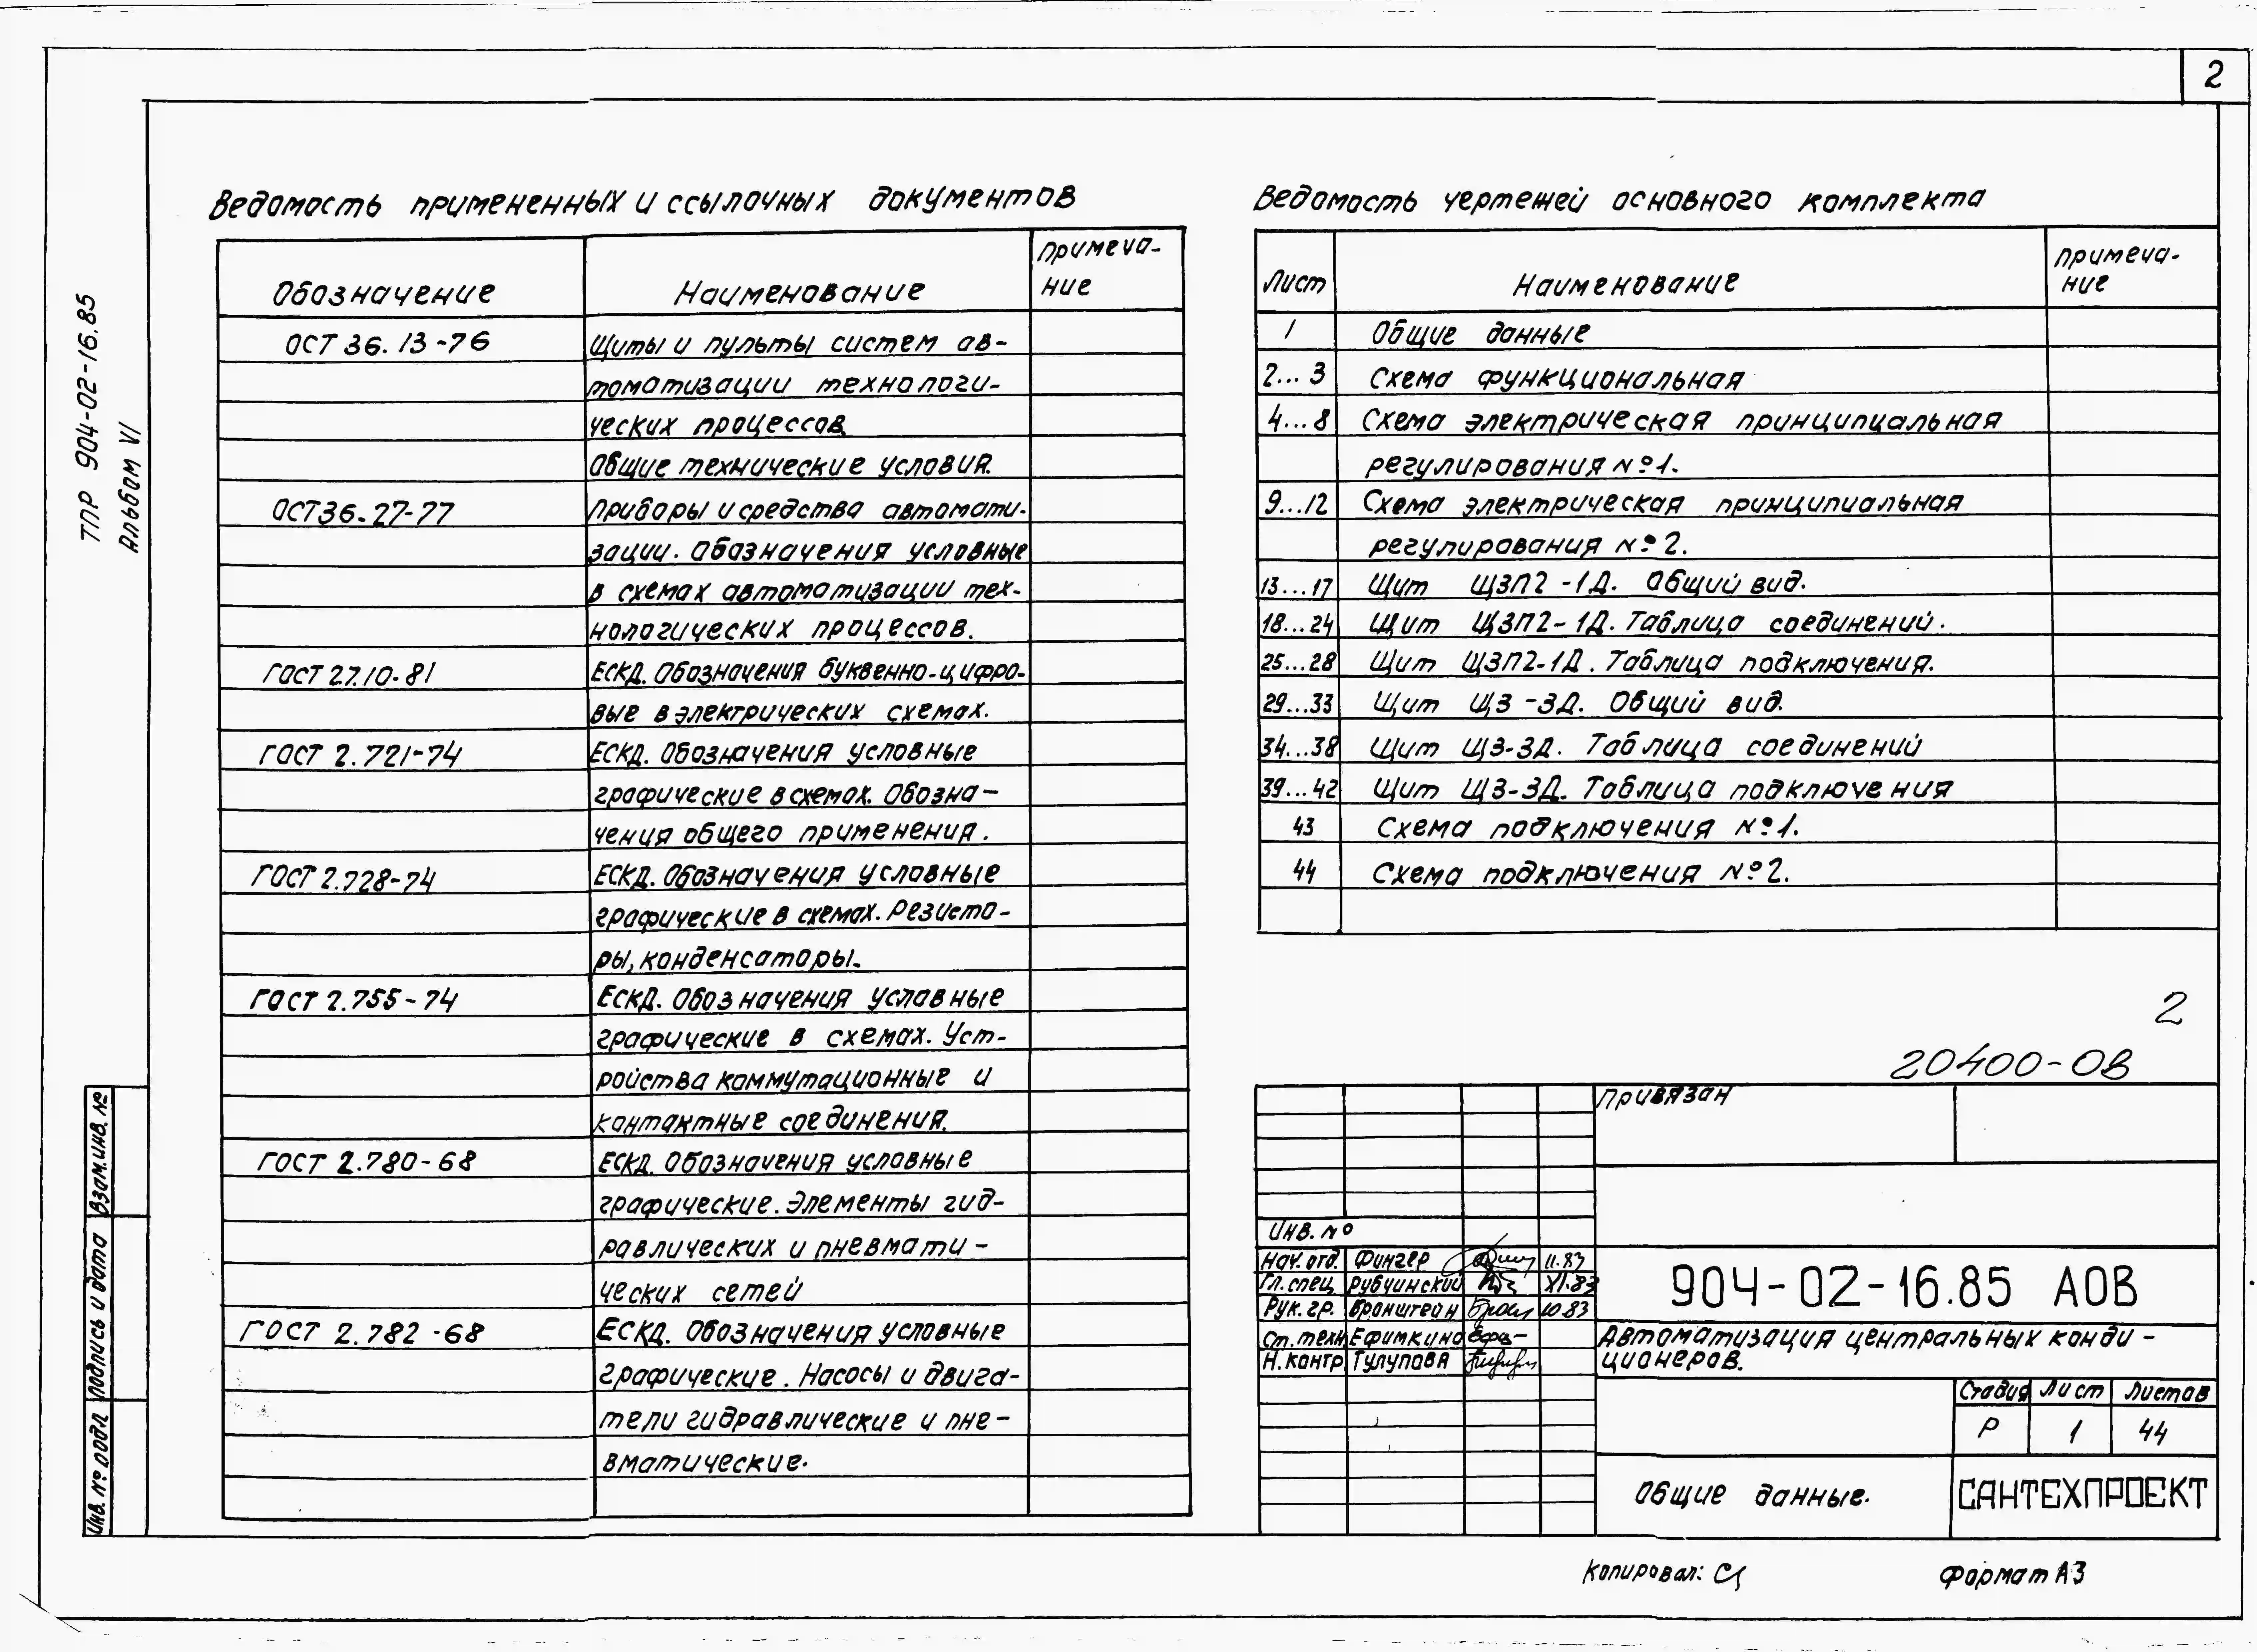 2
ТПР 904-02-16.85
Альбом VI
Ведомость примененных и ссылочных документов
Обозначение Наименование Примеча-
ние
ОСТ 36.13-76 Щиты и пульты систем ав-
томатизации технологи-
ческих процессов
Общие технические условия.
ОСТ 36.27-77 Приборы и средства автомати-
зации. Обозначения условные
в схемах автоматизации тех-
нологических процессов.
ГОСТ 2.710-81 ЕСКД. Обозначения буквенно-цифро-
вые в электрических схемах.
ГОСТ 2.721-74 ЕСКД. Обозначения условные
графические в схемах. Обозна-
чения общего применения.
ГОСТ 2.728-74 ЕСКД. Обозначения условные
графические в схемах. Резисто-
ры, конденсаторы.
ГОСТ 2.755-74 ЕСКД. Обозначения условные
графические в схемах. Уст-
ройства коммутационные и
контактные соединения.
ГОСТ 2.780-68 ЕСКД. Обозначения условные
графические. Элементы гид-
равлических и пневмати-
ческих сетей
ГОСТ 2.782-68 ЕСКД. Обозначения условные
графические. Насосы и двига-
тели гидравлические и пне-
вматические.
Ведомость чертежей основного комплекта
Лист Наименование Примеча-
ние
1 Общие данные
2...3 Схема функциональная
4...8 Схема электрическая принципиальная
регулирования №1.
9...12 Схема электрическая принципиальная
регулирования №2.
13...17 Щит ЩЗП2-1Д. Общий вид.
18...24 Щит ЩЗП2-1Д. Таблица соединений.
25...28 Щит ЩЗП2-1Д. Таблица подключения.
29...33 Щит ЩЗ-3Д. Общий вид.
34...38 Щит ЩЗ-3Д. Таблица соединений
39...42 Щит ЩЗ-3Д. Таблица подключения
43 Схема подключения №1.
44 Схема подключения №2.
2
20400-08
Привязан
Инв. №
Нач. отд. Фингер 11.83
Гл. спец. Рубчинский XI.83
Рук. гр. Бронштейн 10.83
Ст. техн Ефимкина
Н. контр. Тулупова
904-02-16.85 АОВ
Автоматизация центральных конди-
ционеров.
Стадия Лист Листов
Р 1 44
Общие данные.
САНТЕХПРОЕКТ
Взам. инв. №
Подпись и дата
Инв. № подл
Копировал:
Формат А3